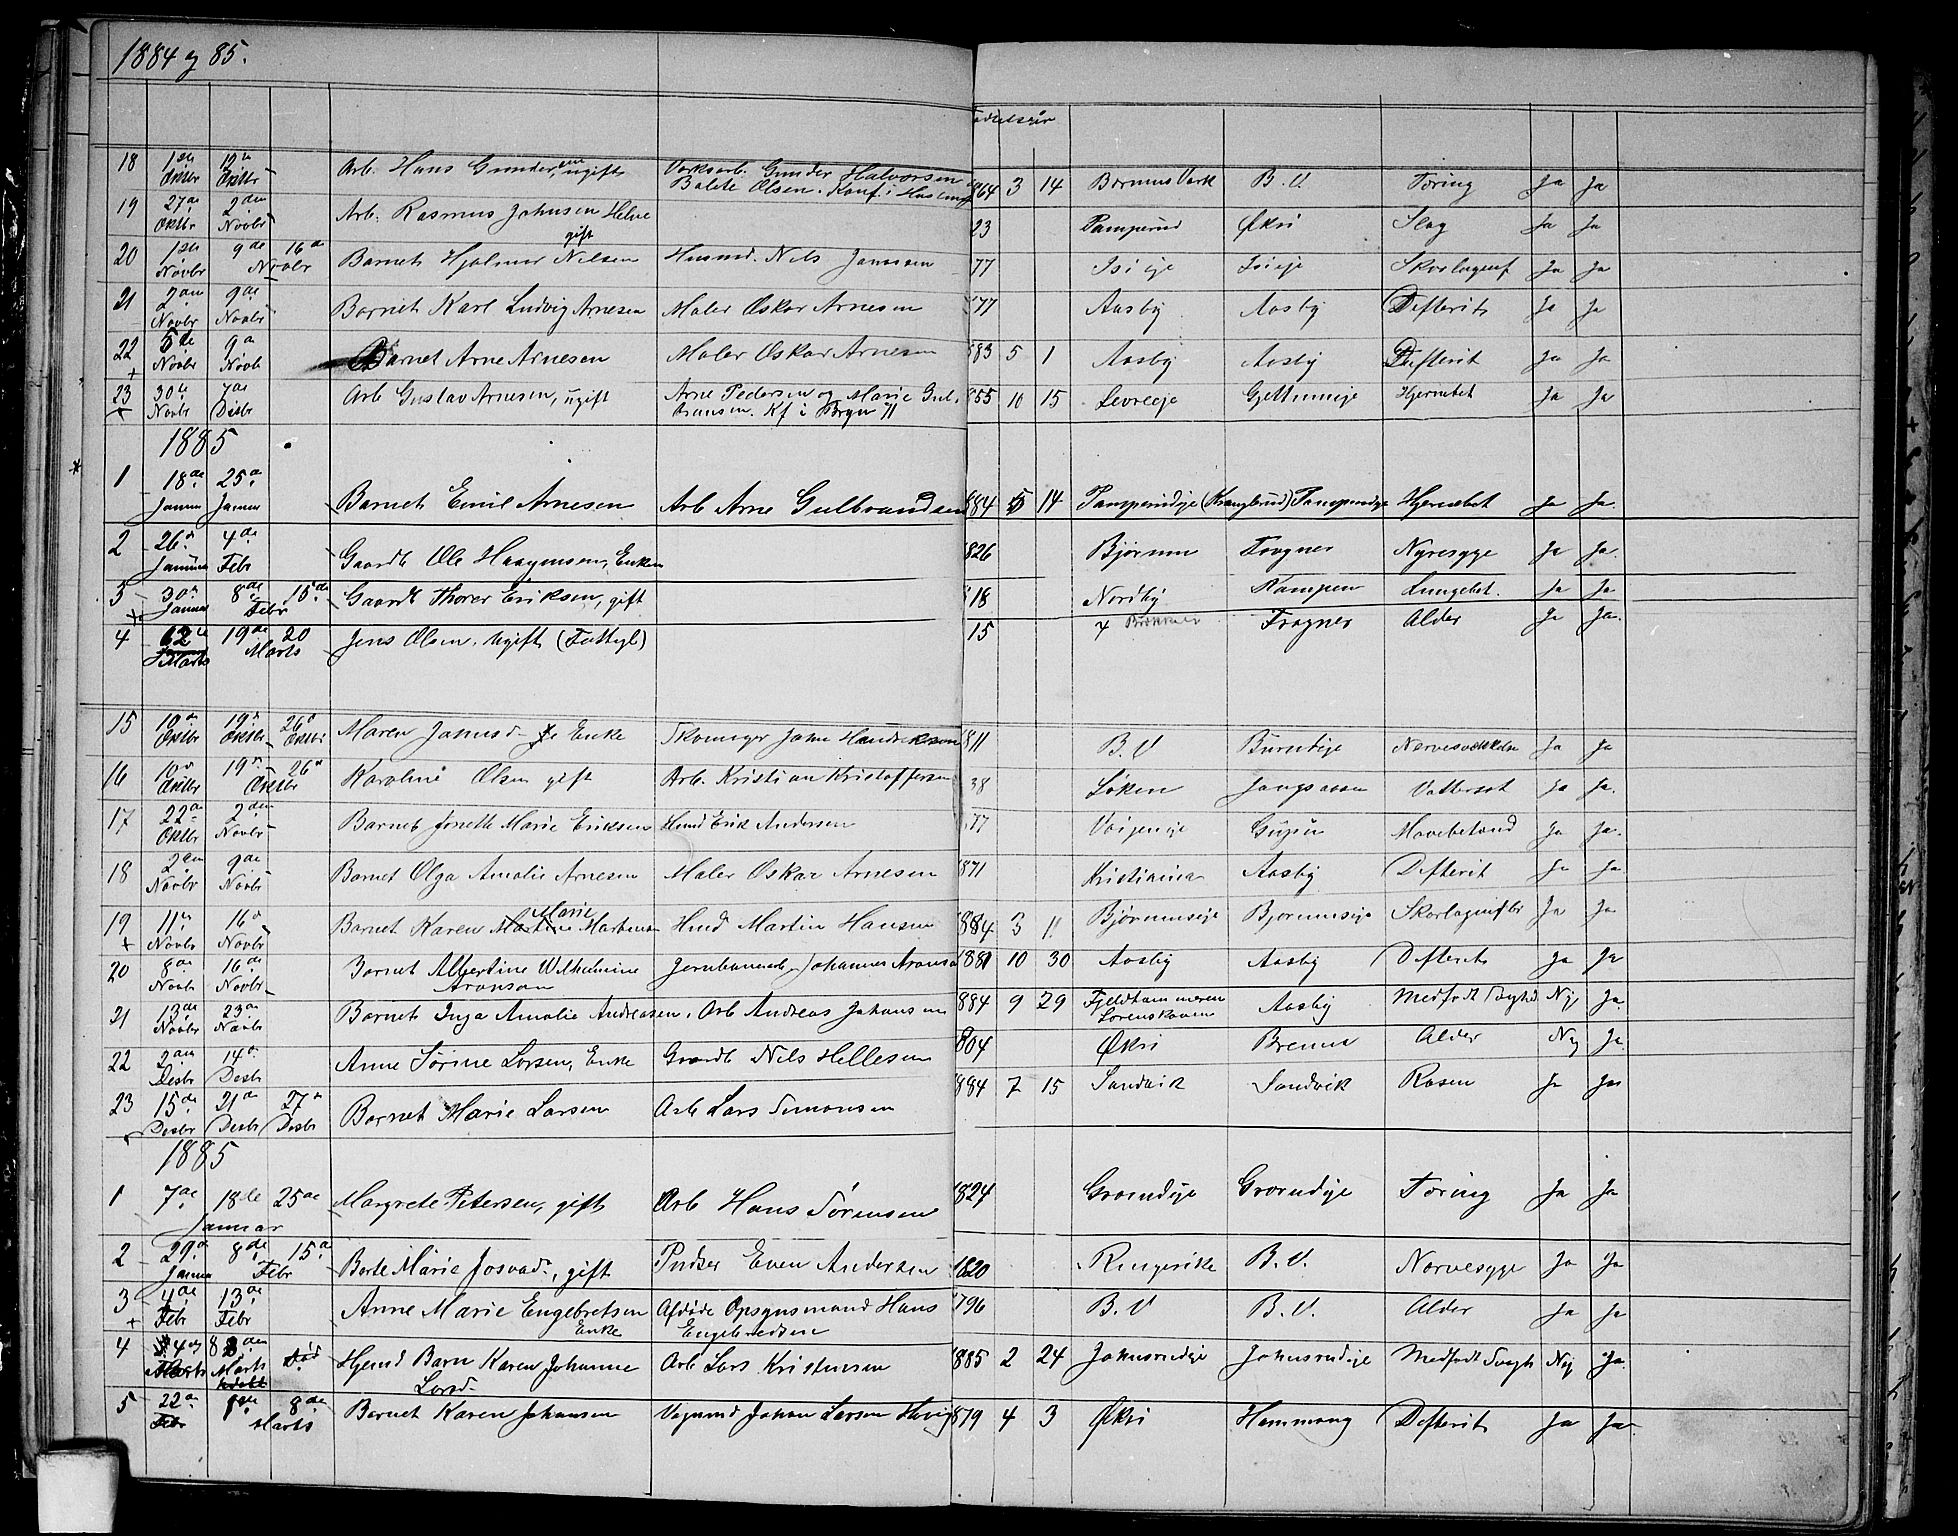 1884 og 85.
Fødselsår
18 1ste Oktbr 12te Oktbr Arb. Hans Gundersen, ugift Verksarb. Gunder Halvorsen 1864 3 14 Bærums Værk B. V. Tæring Ja Ja
Balete Olsen. Konf. i
19 27de Oktbr 2den Novbr Arb. Rasmus Johnsen Helne gift 23 Pamperud Økri Slag Ja Ja
20 1ste Novbr 9de 16de Novbr Barnet Hjalmar Nilsen Husmd. Nils Janssen 77 Isieie Isieje Skarlagensf Ja Ja
21 2den Novbr 9de Novbr Barnet Karl Ludvig Arnesen Maler Oskar Arnesen 77 Aasby Aasby Defterit Ja Ja
22 5te Novbr 9de Novb Barnet Arne Arnesen Maler Oskar Arnesen 883 5 1 Aasby Aasby Defterit Ja Ja
23 30te Novbr 7de Desbr Arb Gustav Arnesen, ugift Arne Pedersen og Marie Gul- 855 10 15 Levreeje Gjettumeje Hjernebet Ja Ja
bransen. Kf i 71
1885
1 18de Januar 25de Januar Barnet Emil Arnesen Arb Arne Gulbrandsen 884 5 14 Pamperudeje (Kranglerud) Pamperudeje Hjernebet Ja Ja.
2 26de Januar 4de Febr Gaardb Ole Haagensen, Enkem 826 Bjørum Tongner Nyresyge Ja Ja.
3 30te Januar 8de 15de Febr Gaardb Thorer Eriksen, gift 18 Nordby Kampen Lungebet. Ja Ja
4 Marts 19de 20 Marts Jens Olsen, ugift (Fattigl) 15 Frogner Alder Ja Ja.
15 10de Oktbr 19de Oktbr 26de Oktbr Maren Jansd- Enke Skomager Jakob Hendriksen 1811 B. V Burudeje Ja Ja
16 10de Oktbr 19de 26de Oktbr Karoline Olsen gift Arb. Kristian Kristoffersen 38 Løken Jongsaasen Vattersot Ja Ja.
17 22de Oktbr 2den Novbr Barnet Jonette Marie Eriksen Husmd Erik Andersen 77 Mavebetænd Ja Ja.
18 2den Novbr 9de Novbr Barnet Olga Amalie Arnesen Maler Oskar Arnesen 1871 Kristiania Aasby Defterit Ja Ja.
19 11te Novbr 16de Novbr Barnet Karen Marie Martinsen Husmd Martin Hansen 1884 3 11 Bjørumseje Bjørumseje Skarlagensfbr Ja Ja
20 8de Novbr 16de Novbr Barnet Albertine Wilhelmine Jernbanearb. Johannes Aronsen 1881 10 30 Aasby Aasby Defterit Ja Ja
Aronsen
21 13de Novbr 23de Novbr Barnet Inga Amalie Andreasen, Arb Andreas Johansen 884 9 29 Fjeldhammeren Aasby Medfødt Svaghed Nej Ja.
Lørenskoven
22 2den Desbr 14de Desbr Anne Sørine Larsen, Enke Gaardb Nils Hellesen 804 Økri Brenna Alder Nej Ja.
23 15de Desbr 21de Desbr 27de Desbr Barnet Marie Larsen Arb Lars Simonsen 884 7 15 Sandvik Sandvik Rosen Ja Ja
1885
1 7de 18de 25de Margrete Petersen, gift Arb Hans Sørensen 1824 Grorudeje Grorudeje Tæring Ja Ja
Januar
2 29de Januar 8de 15de Febr Berte Marie Josvad., gift Pudser Even Andersen 1820 Ringerike B. V. Nervesyge Ja Ja
3 4de Febr 13de Febr Anne Marie Engebretsen Afdøde Opsynsmand Hans 796 B. V B. V. Alder Ja Ja
Enke Engebredsen
4 Marts Marts død Hjemd Barn Karen Johanne Arb Lars Kristensen 885 2 24 Johnsrudeje Johnsrudeje Medfødt Svagh Nej Ja.
Larsd-
5 22de Febr 1ste 8de Marts Barnet Karen Johansen Vognmd Johan Larsen 879 4 3 Økri Hammang Defterit Ja Ja.